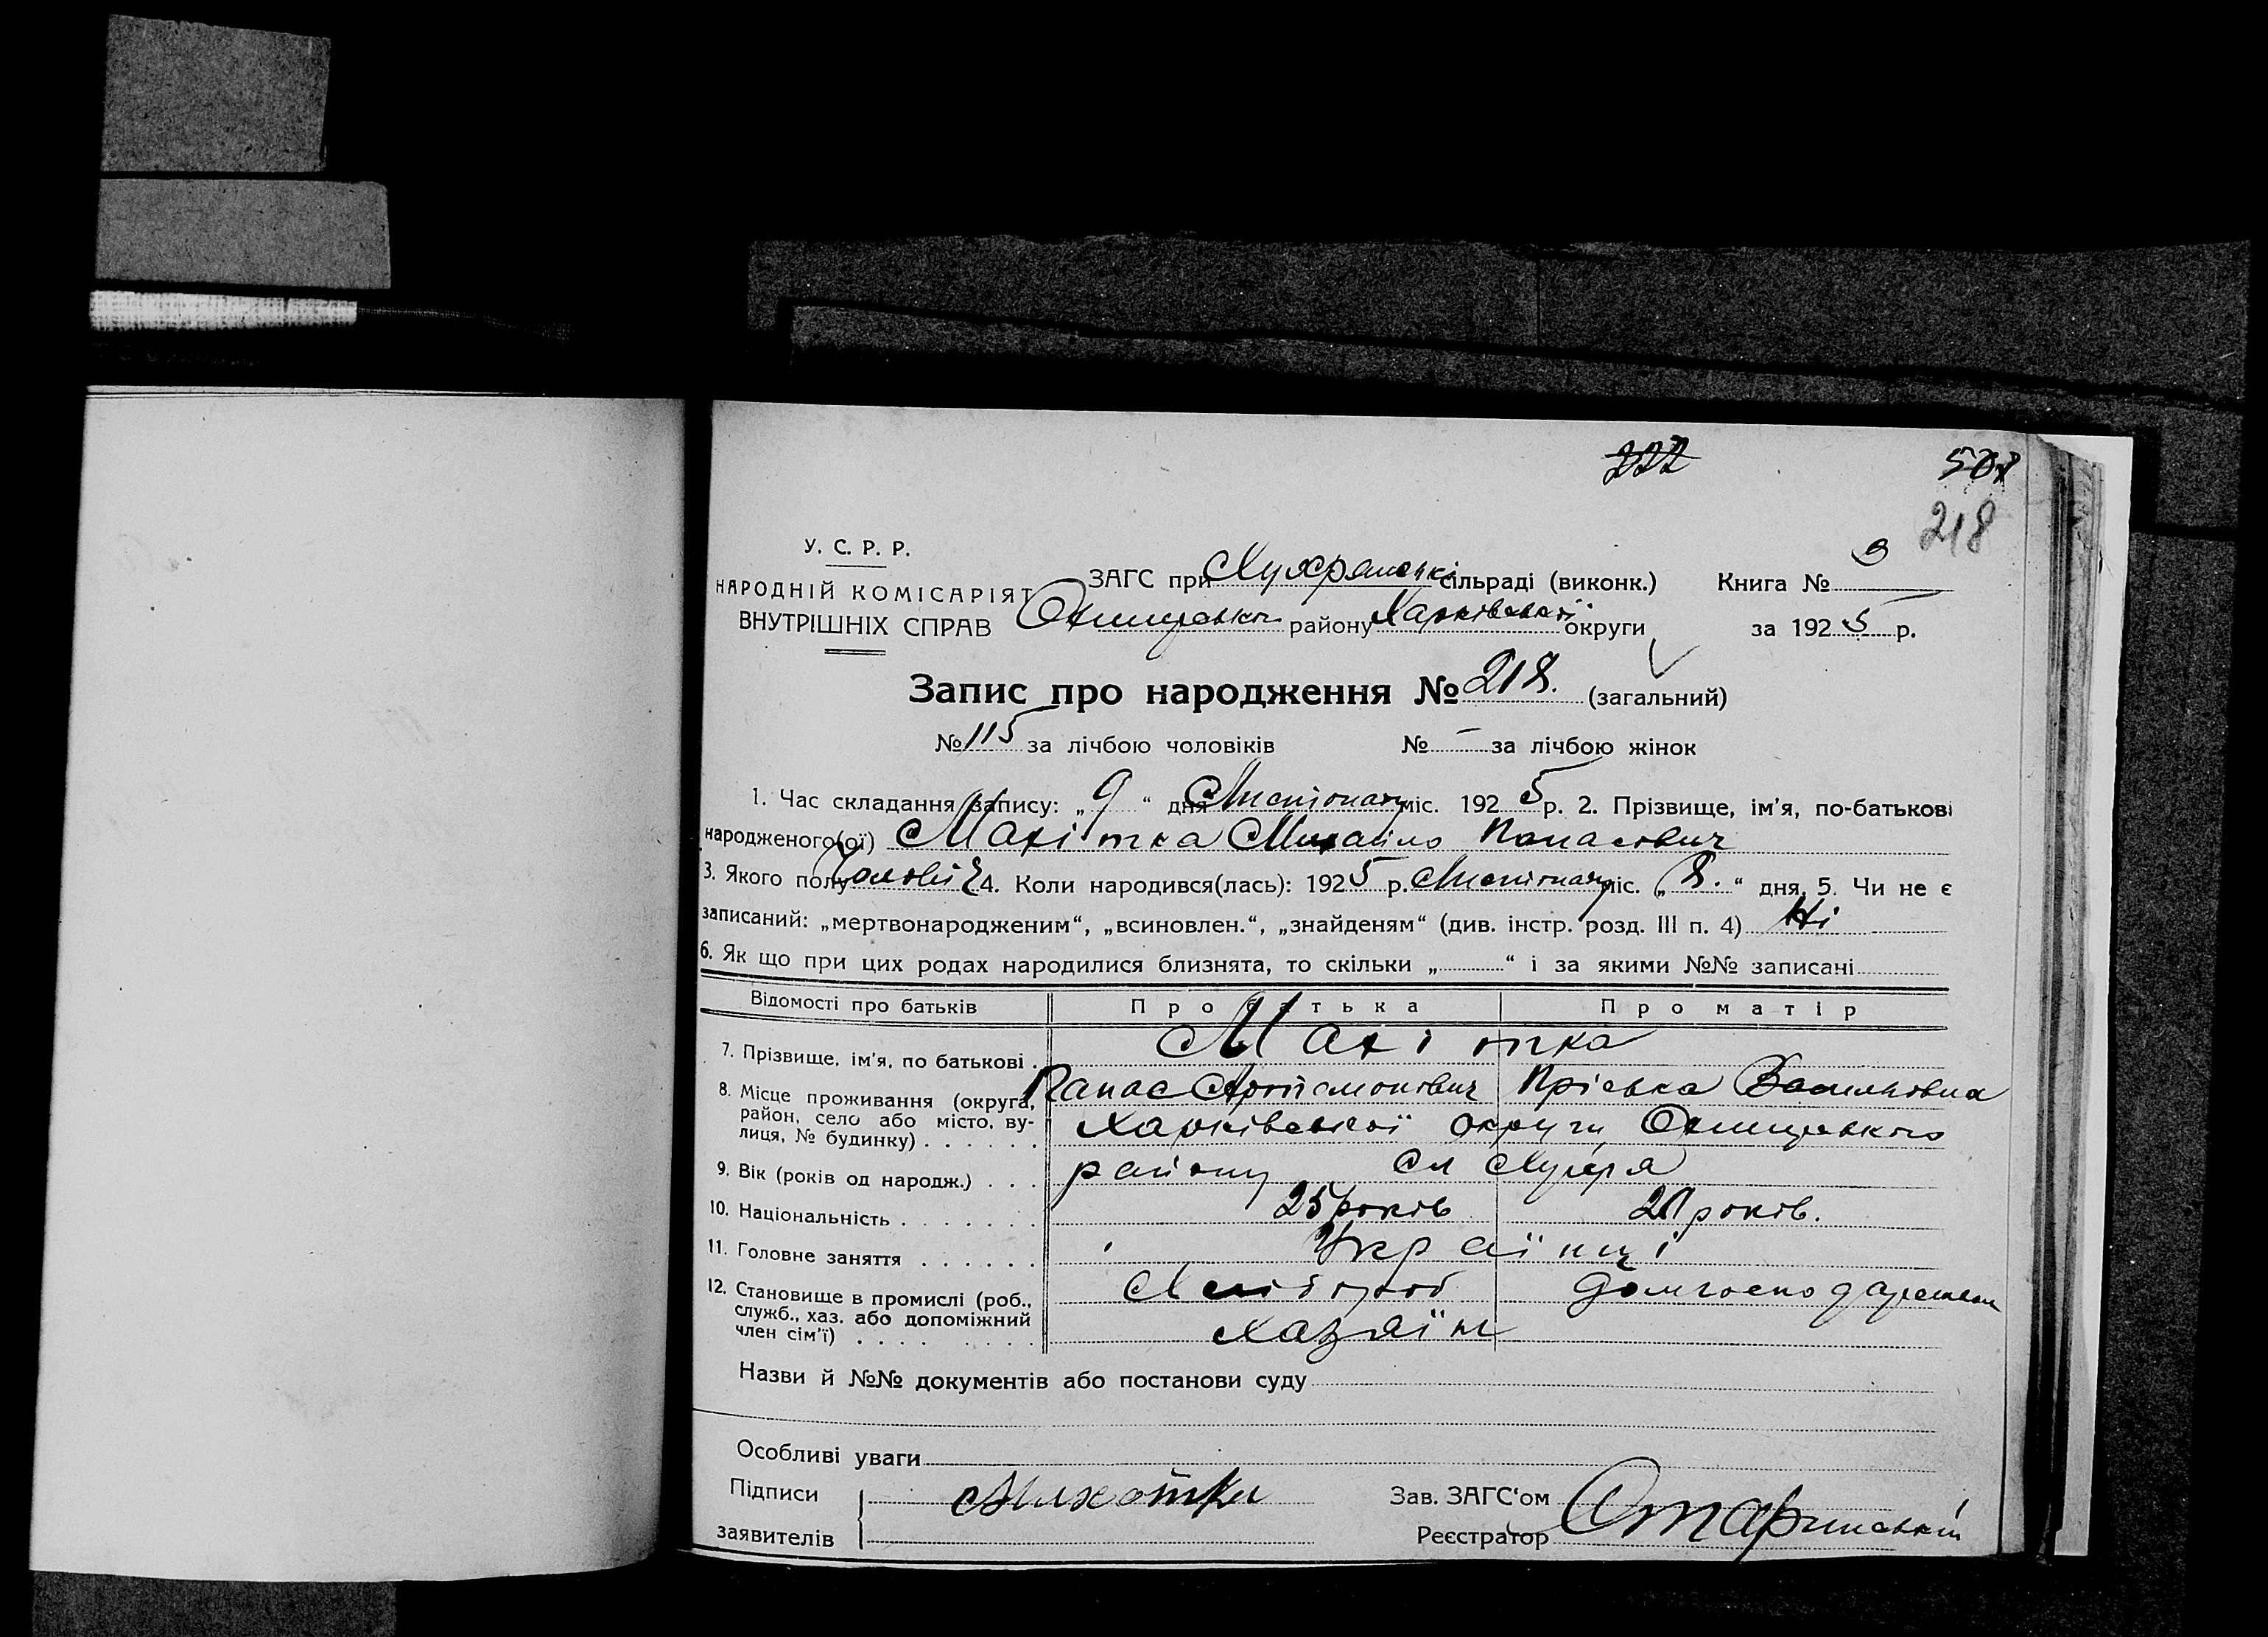 222 501
218
У. С. Р. Р.
НАРОДНІЙ КОМІСАРІЯТ
ВНУТРІШНІХ СПРАВ
ЗАГС при сільраді (виконк.) Книга № 3
району Харківської округи за 1925 р.
Запис про народження № 218. (загальний)
№ 115 за лічбою чоловіків № – за лічбою жінок
1. Час складання запису: „9“ дня Листопаду міс. 1925 р. 2. Прізвище, ім'я, по-батькові
народженого(ої) Махітка Михайло Панасович
3. Якого полу Чоловіч 4. Коли народився(лась): 1925 р. Листопаду міс. „8.“ дня. 5. Чи не є
записаний: „мертвонародженим“, „всиновлен.“, „знайденям“ (див. інстр. розд. III п. 4) Ні
6. Як що при цих родах народилися близнята, то скільки „ “ і за якими №№ записані
Відомості про батьків Про батька Про матір
7. Прізвище, ім'я, по батькові . Махітка
Панас Артемонович Пріська Васильовна
8. Місце проживання (округа, район, село або місто, вулиця, № будинку) . . . . . . Харківської округи
району
9. Вік (років од народж.) . . . 25 років років.
10. Національність . . . . . . . Українці
11. Головне заняття . . . . . . Хлібороб
12. Становище в промислі (роб., служб., хаз. або допоміжний член сім'ї) . . . . . . . . Хазяїн
Назви й №№ документів або постанови суду
Особливі уваги
Підписи
заявителів
Зав. ЗАГС'ом
Реєстратор